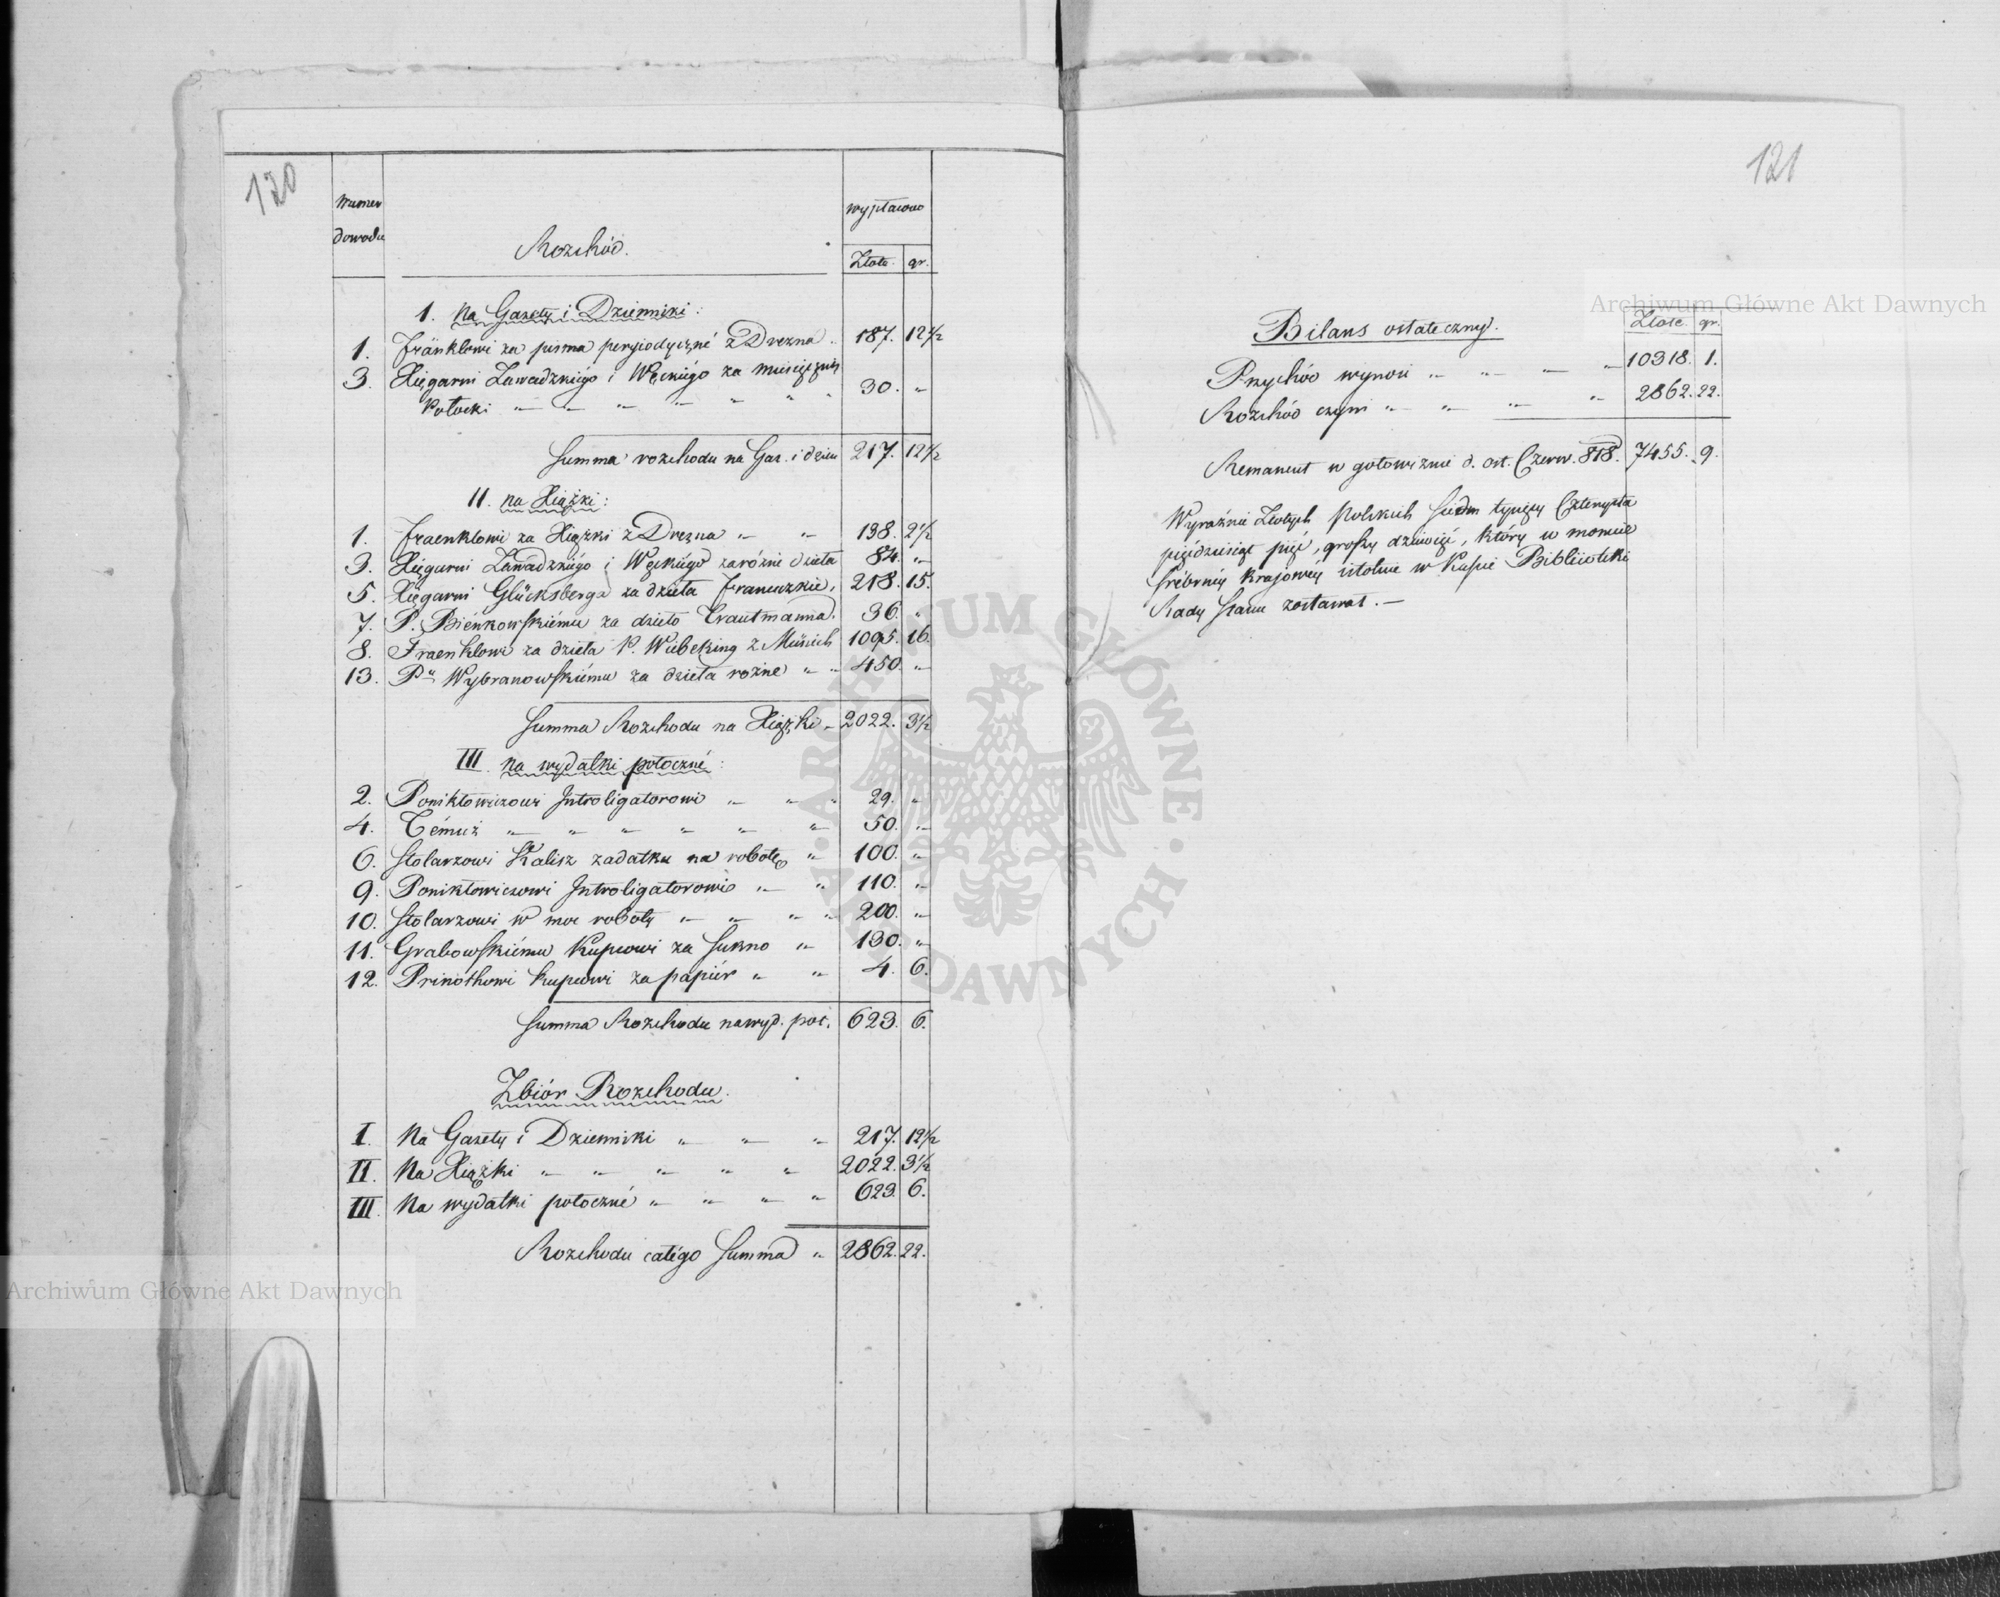 120
Numer
dowodu
Rozchód.
wypłacono
Złote. gr.
1. Na Gazety i Dzienniki:
1. Fränklowi za pisma peryiodyczné z Drezna 187. 12½
3. Xięgarni Zawadzkiégo i Węckiégo za miesięcznik
Połocki " " " " " " " 30. "
Summa rozchodu na Gaz. i dzien 217. 12½
II. na Xiążki:
1. Fraenklowi za Xiążki z Drezna " " 138. 2½
3. Xięgarni Zawadzkiégo i Węckiégo za różne dzieła 84. "
5. Xięgarni Glücksberga za dzieła Francuzkie, 218. 15.
7. P. Bieńkowskiému za dzieło Trautmanna. 36. "
8. Fraenklowi za dzieła P. Wiebeking z Münich 1095. 16.
13. Pu Wybranowskiému za dzieła rożne " " 450. "
Summa Rozchodu na Xiążki " 2022. 3½
III. na wydatki potoczné:
2. Poniktowiczowi Introligatorowi " " " 29. "
4. Témuż " " " " " " 50. "
6. Stolarzowi Kalisz zadatku na robotę " 100. "
9. Poniktowiczowi Introligatorowi " " 110. "
10. Stolarzowi w moc roboty " " " " 200. "
11. Grabowskiému Kupcowi za Sukno " 130. "
12. Prinothowi kupcowi za papiér " " 4. 6.
Summa Rozchodu na wyd. pot. 623. 6.
Zbiór Rozchodu.
I. Na Gazety i Dzienniki " " " 217. 12½
II. Na Xiążki " " " " " 2022. 3½
III. Na wydatki potoczné " " " " 623. 6.
Rozchodu całégo Summa " 2862. 22.
121
Bilans ostateczny.
Złote. gr.
Przychód wynosi " " " " 10318. 1.
Rozchód czyni " " " " 2862. 22.
Remanent w gotowiznie d. ost. Czerw. 818. 7455. 9.
Wyraźnie Złotych Polskich Siedm tysięcy Czterysta
pięćdziesiąt pięć, groszy dziewięć, który w monecie
srébrnéy krajowéy istotnie w Kassie Biblioteki
Rady Stanu zostawał. —
Archiwum Główne Akt Dawnych
Archiwum Główne Akt Dawnych
ARCHIWUM GŁÓWNE · AKT DAWNYCH ·